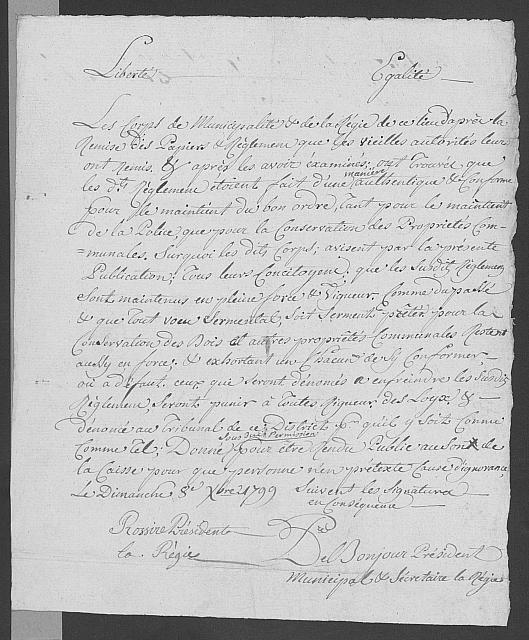 Liberté Egalité
Les Corps de Municipalité & de la Régie de ce lieu d'après la
Remise des Papiers & Règlement que les vieilles autorités leurs
ont Remis. & après les avoir éxaminés; ont Trouvé que
les dts Règlement étoient fait d'une manière authentique & Conforme
pour le maintient du bon ordre, tant pour le maintient
de la Police, que pour la Conservation des Proprietés Com-
=munales. Surquoi les dits Corps; avisent par la présente
Publication; Tous leurs Concitoyens; que les Susdits Règlemens
Sont maintenus en pleine force & Vigueur. Comme du passé
& que Tout voeu Sermental, Soit Serments prêtés pour la
Conservation des Bois et autres propriétés Communales Restent
aussy en force; & exhortant un Chacun de Sy Conformer
ou à défaut. ceux que Seront dénoncés à enfreindre les Susdits
Règlement, Seront punir à Toutes Rigueur des Loyx &
dénoncé au Tribunal de ce District pr qu'il y Soit Connu
Comme Tel; Donné Sous due Permission pour être Rendu Public au Son de
la Caisse pour que personne n'en prétexte Cause d'ignorance,
Le Dimanche 8e Xbre 1799 Suivent les Signatura
en Conséquence
Rossire Présidente
la Régie DelBonjour Président
Municipal & Sécretaire la Régie